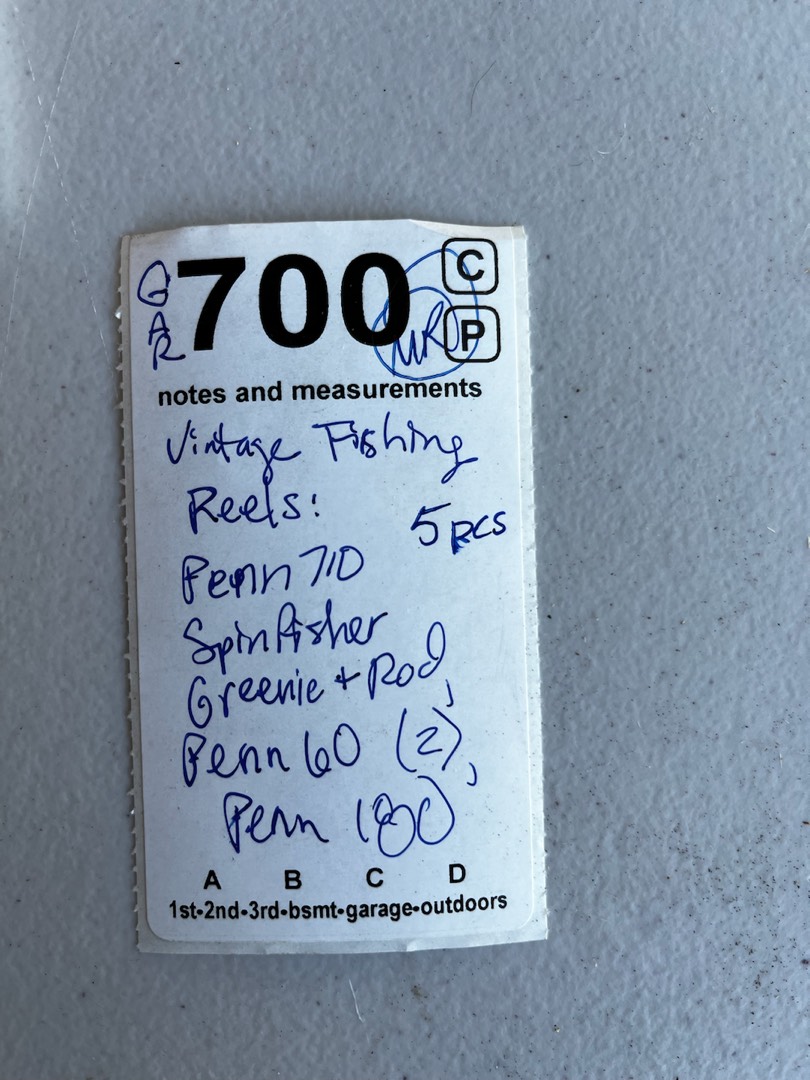 GAR
700
C
MR
P
notes and measurements
Vintage Fishing
Reels:
5 pcs
Penn 710
Spinfisher
Greenie + Rod,
Penn 60 (2),
Penn 180
A B C D
1st-2nd-3rd-bsmt-garage-outdoors